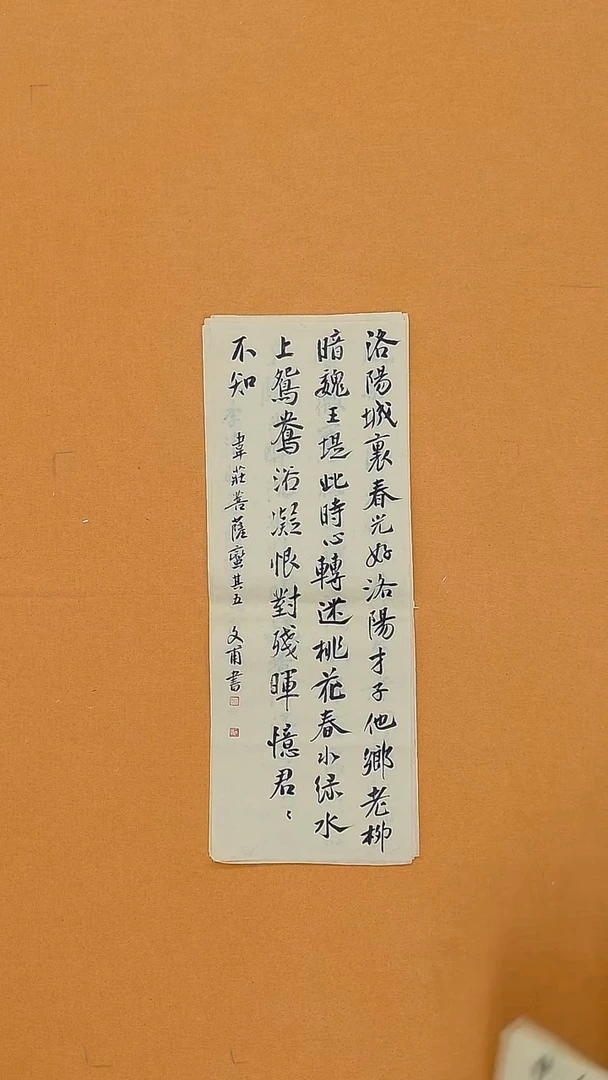 洛陽城裏春光好洛陽才子他鄉老柳
暗魏王堤此時心轉迷桃花春水绿水
上鴛鴦浴凝恨對殘暉憶君〻
不知
韋莊菩薩蠻其五 文甫書